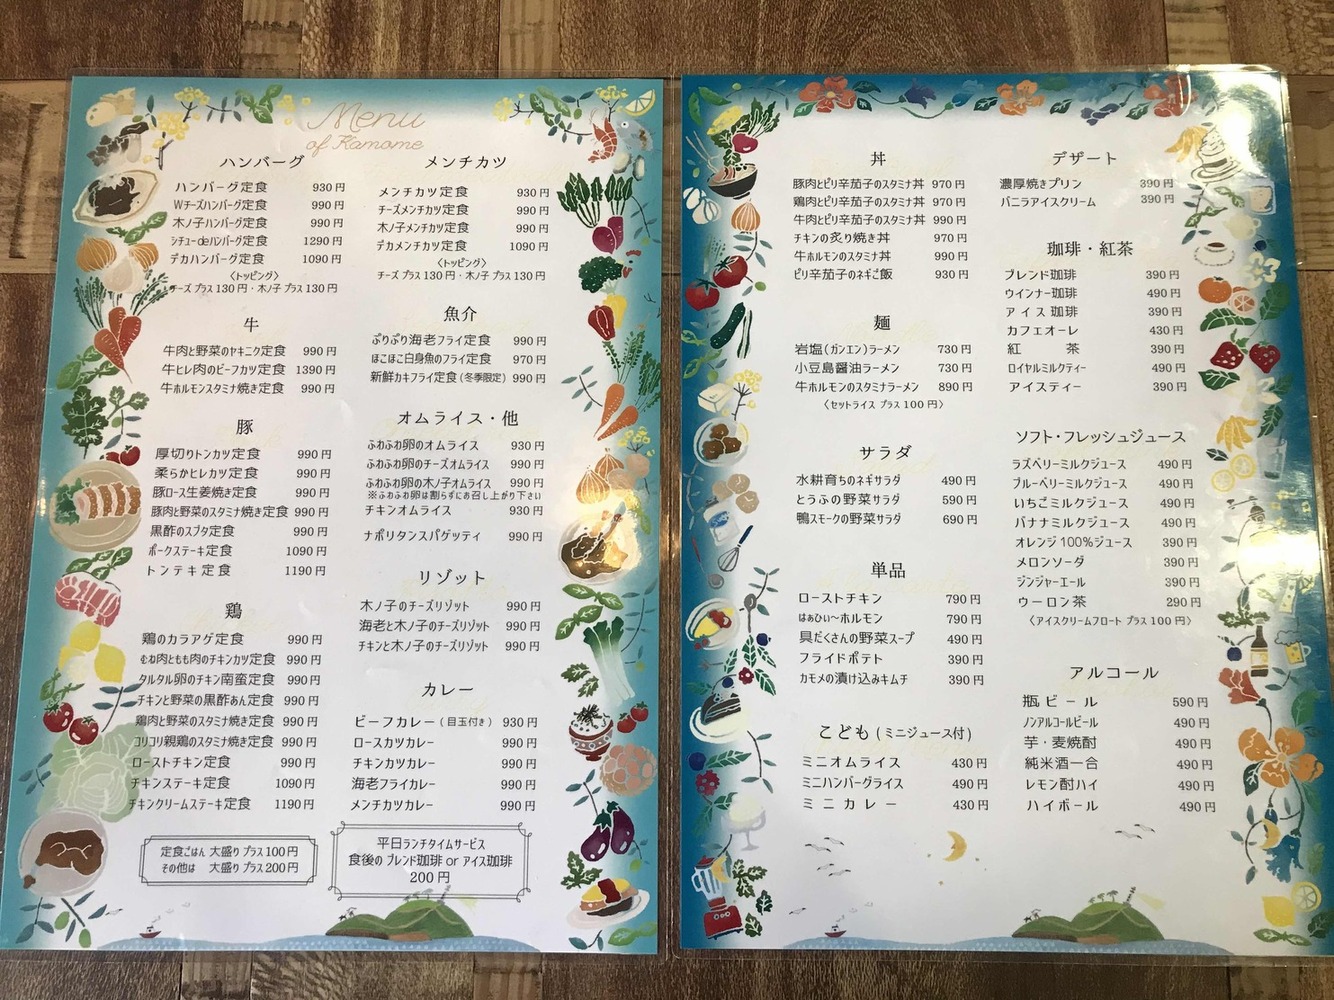 Menu
of Kamome
ハンバーグ
ハンバーグ定食 930円
Wチーズハンバーグ定食 990円
木ノ子ハンバーグ定食 990円
シチューdeハンバーグ定食 1290円
デカハンバーグ定食 1090円
〈トッピング〉
チーズ プラス 130円・木ノ子 プラス 130円
牛
牛肉と野菜のヤキニク定食 990円
牛ヒレ肉のビーフカツ定食 1390円
牛ホルモンスタミナ焼き定食 990円
豚
厚切りトンカツ定食 990円
柔らかヒレカツ定食 990円
豚ロース生姜焼き定食 990円
豚肉と野菜のスタミナ焼き定食 990円
黒酢のスブタ定食 990円
ポークステーキ定食 1090円
トンテキ定食 1190円
鶏
鶏のカラアゲ定食 990円
むね肉ともも肉のチキンカツ定食 990円
タルタル卵のチキン南蛮定食 990円
チキンと野菜の黒酢あん定食 990円
鶏肉と野菜のスタミナ焼き定食 990円
コリコリ親鶏のスタミナ焼き定食 990円
ローストチキン定食 990円
チキンステーキ定食 1090円
チキンクリームステーキ定食 1190円
定食ごはん 大盛り プラス 100円
その他は 大盛り プラス 200円
メンチカツ
メンチカツ定食 930円
チーズメンチカツ定食 990円
木ノ子メンチカツ定食 990円
デカメンチカツ定食 1090円
〈トッピング〉
チーズ プラス 130円・木ノ子 プラス 130円
魚介
ぷりぷり海老フライ定食 990円
ほこほこ白身魚のフライ定食 970円
新鮮カキフライ定食(冬季限定) 990円
オムライス・他
ふわふわ卵のオムライス 930円
ふわふわ卵のチーズオムライス 990円
ふわふわ卵の木ノ子オムライス 990円
※ふわふわ卵は割らずにお召し上がり下さい
チキンオムライス 930円
ナポリタンスパゲッティ 990円
リゾット
木ノ子のチーズリゾット 990円
海老と木ノ子のチーズリゾット 990円
チキンと木ノ子のチーズリゾット 990円
カレー
ビーフカレー(目玉付き) 930円
ロースカツカレー 990円
チキンカツカレー 990円
海老フライカレー 990円
メンチカツカレー 990円
平日ランチタイムサービス
食後の ブレンド珈琲 or アイス珈琲
200円
丼
豚肉とピリ辛茄子のスタミナ丼 970円
鶏肉とピリ辛茄子のスタミナ丼 970円
牛肉とピリ辛茄子のスタミナ丼 990円
チキンの炙り焼き丼 970円
牛ホルモンのスタミナ丼 990円
ピリ辛茄子のネギご飯 930円
麺
岩塩(ガンエン)ラーメン 730円
小豆島醤油ラーメン 730円
牛ホルモンのスタミナラーメン 890円
〈セットライス プラス 100円〉
サラダ
水耕育ちのネギサラダ 490円
とうふの野菜サラダ 590円
鴨スモークの野菜サラダ 690円
単品
ローストチキン 790円
はぁひぃ～ホルモン 790円
具だくさんの野菜スープ 490円
フライドポテト 390円
カモメの漬け込みキムチ 390円
こども(ミニジュース付)
ミニオムライス 430円
ミニハンバーグライス 490円
ミニカレー 430円
デザート
濃厚焼きプリン 390円
バニラアイスクリーム 390円
珈琲・紅茶
ブレンド珈琲 390円
ウインナー珈琲 490円
アイス珈琲 390円
カフェオーレ 430円
紅茶 390円
ロイヤルミルクティー 490円
アイスティー 390円
ソフト・フレッシュジュース
ラズベリーミルクジュース 490円
ブルーベリーミルクジュース 490円
いちごミルクジュース 490円
バナナミルクジュース 490円
オレンジ100%ジュース 390円
メロンソーダ 390円
ジンジャーエール 390円
ウーロン茶 290円
〈アイスクリームフロート プラス 100円〉
アルコール
瓶ビール 590円
ノンアルコールビール 490円
芋・麦焼酎 490円
純米酒一合 490円
レモン酎ハイ 490円
ハイボール 490円